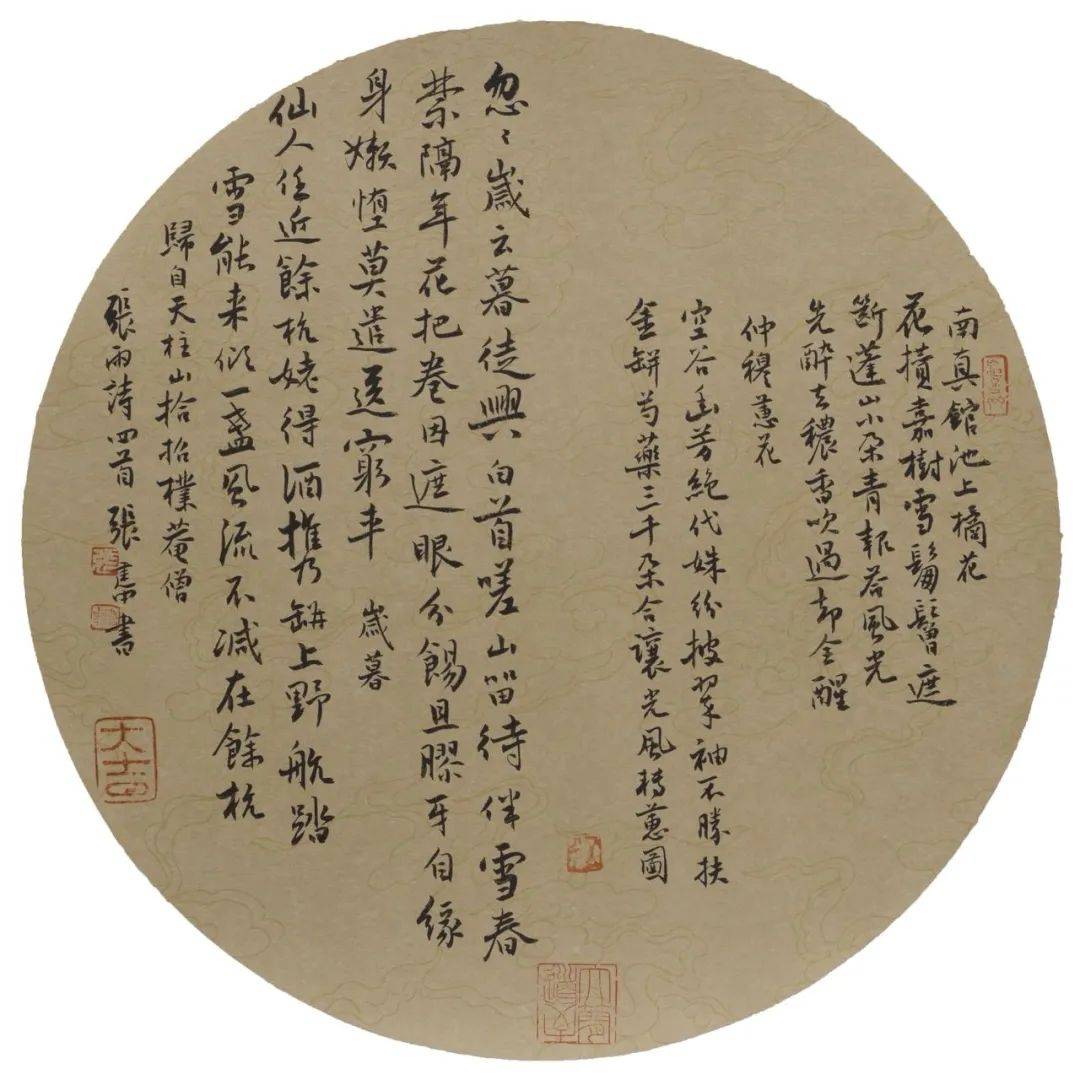 南真館池上橘花
花攢嘉樹雪鬅鬙遮
斷蓬山小朵青報荅風光
先醉去穠香吹過却全醒
仲穆蕙花
空谷幽芳絕代姝紛披翠袖不勝扶
金缾芍藥三千朵合讓光風轉蕙圖
忽〻歲云暮徒興白首嗟山留待伴雪春
禁隔年花把卷因遮眼分餳且膠牙自緣
身嬾堕莫遣送窮車 歲暮
仙人住近餘杭姥得酒攜缾上野航踏
雪能来傾一盞風流不減在餘杭
歸自天柱山拾招樸菴僧
張雨詩四首 張書
大吉